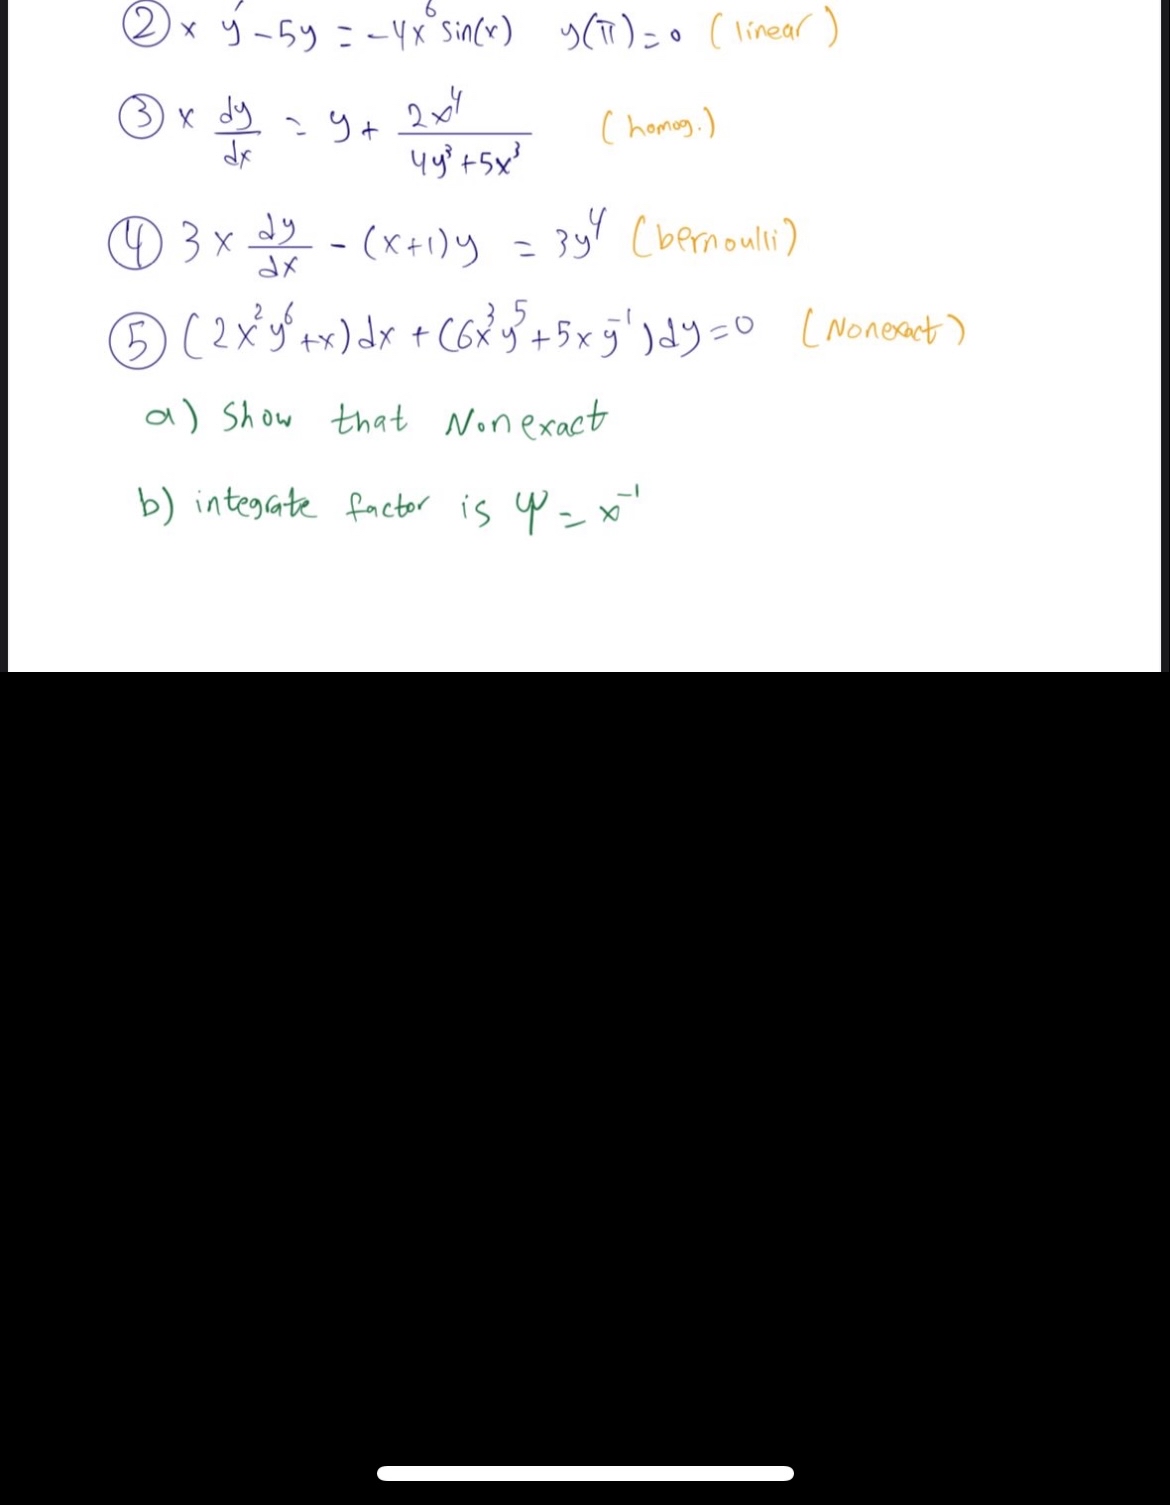 ② x y' - 5y = -4x⁶ sin(x) y(π) = 0 (linear)
③ x dy/dx = y + 2x⁴/(4y³+5x³) (homog.)
④ 3x dy/dx - (x+1)y = 3y⁴ (bernoulli)
⑤ (2x²y⁶+x)dx + (6x³y⁵+5xy⁻¹)dy=0 (Nonexact)
a) Show that Nonexact
b) integrate factor is ψ = x⁻¹